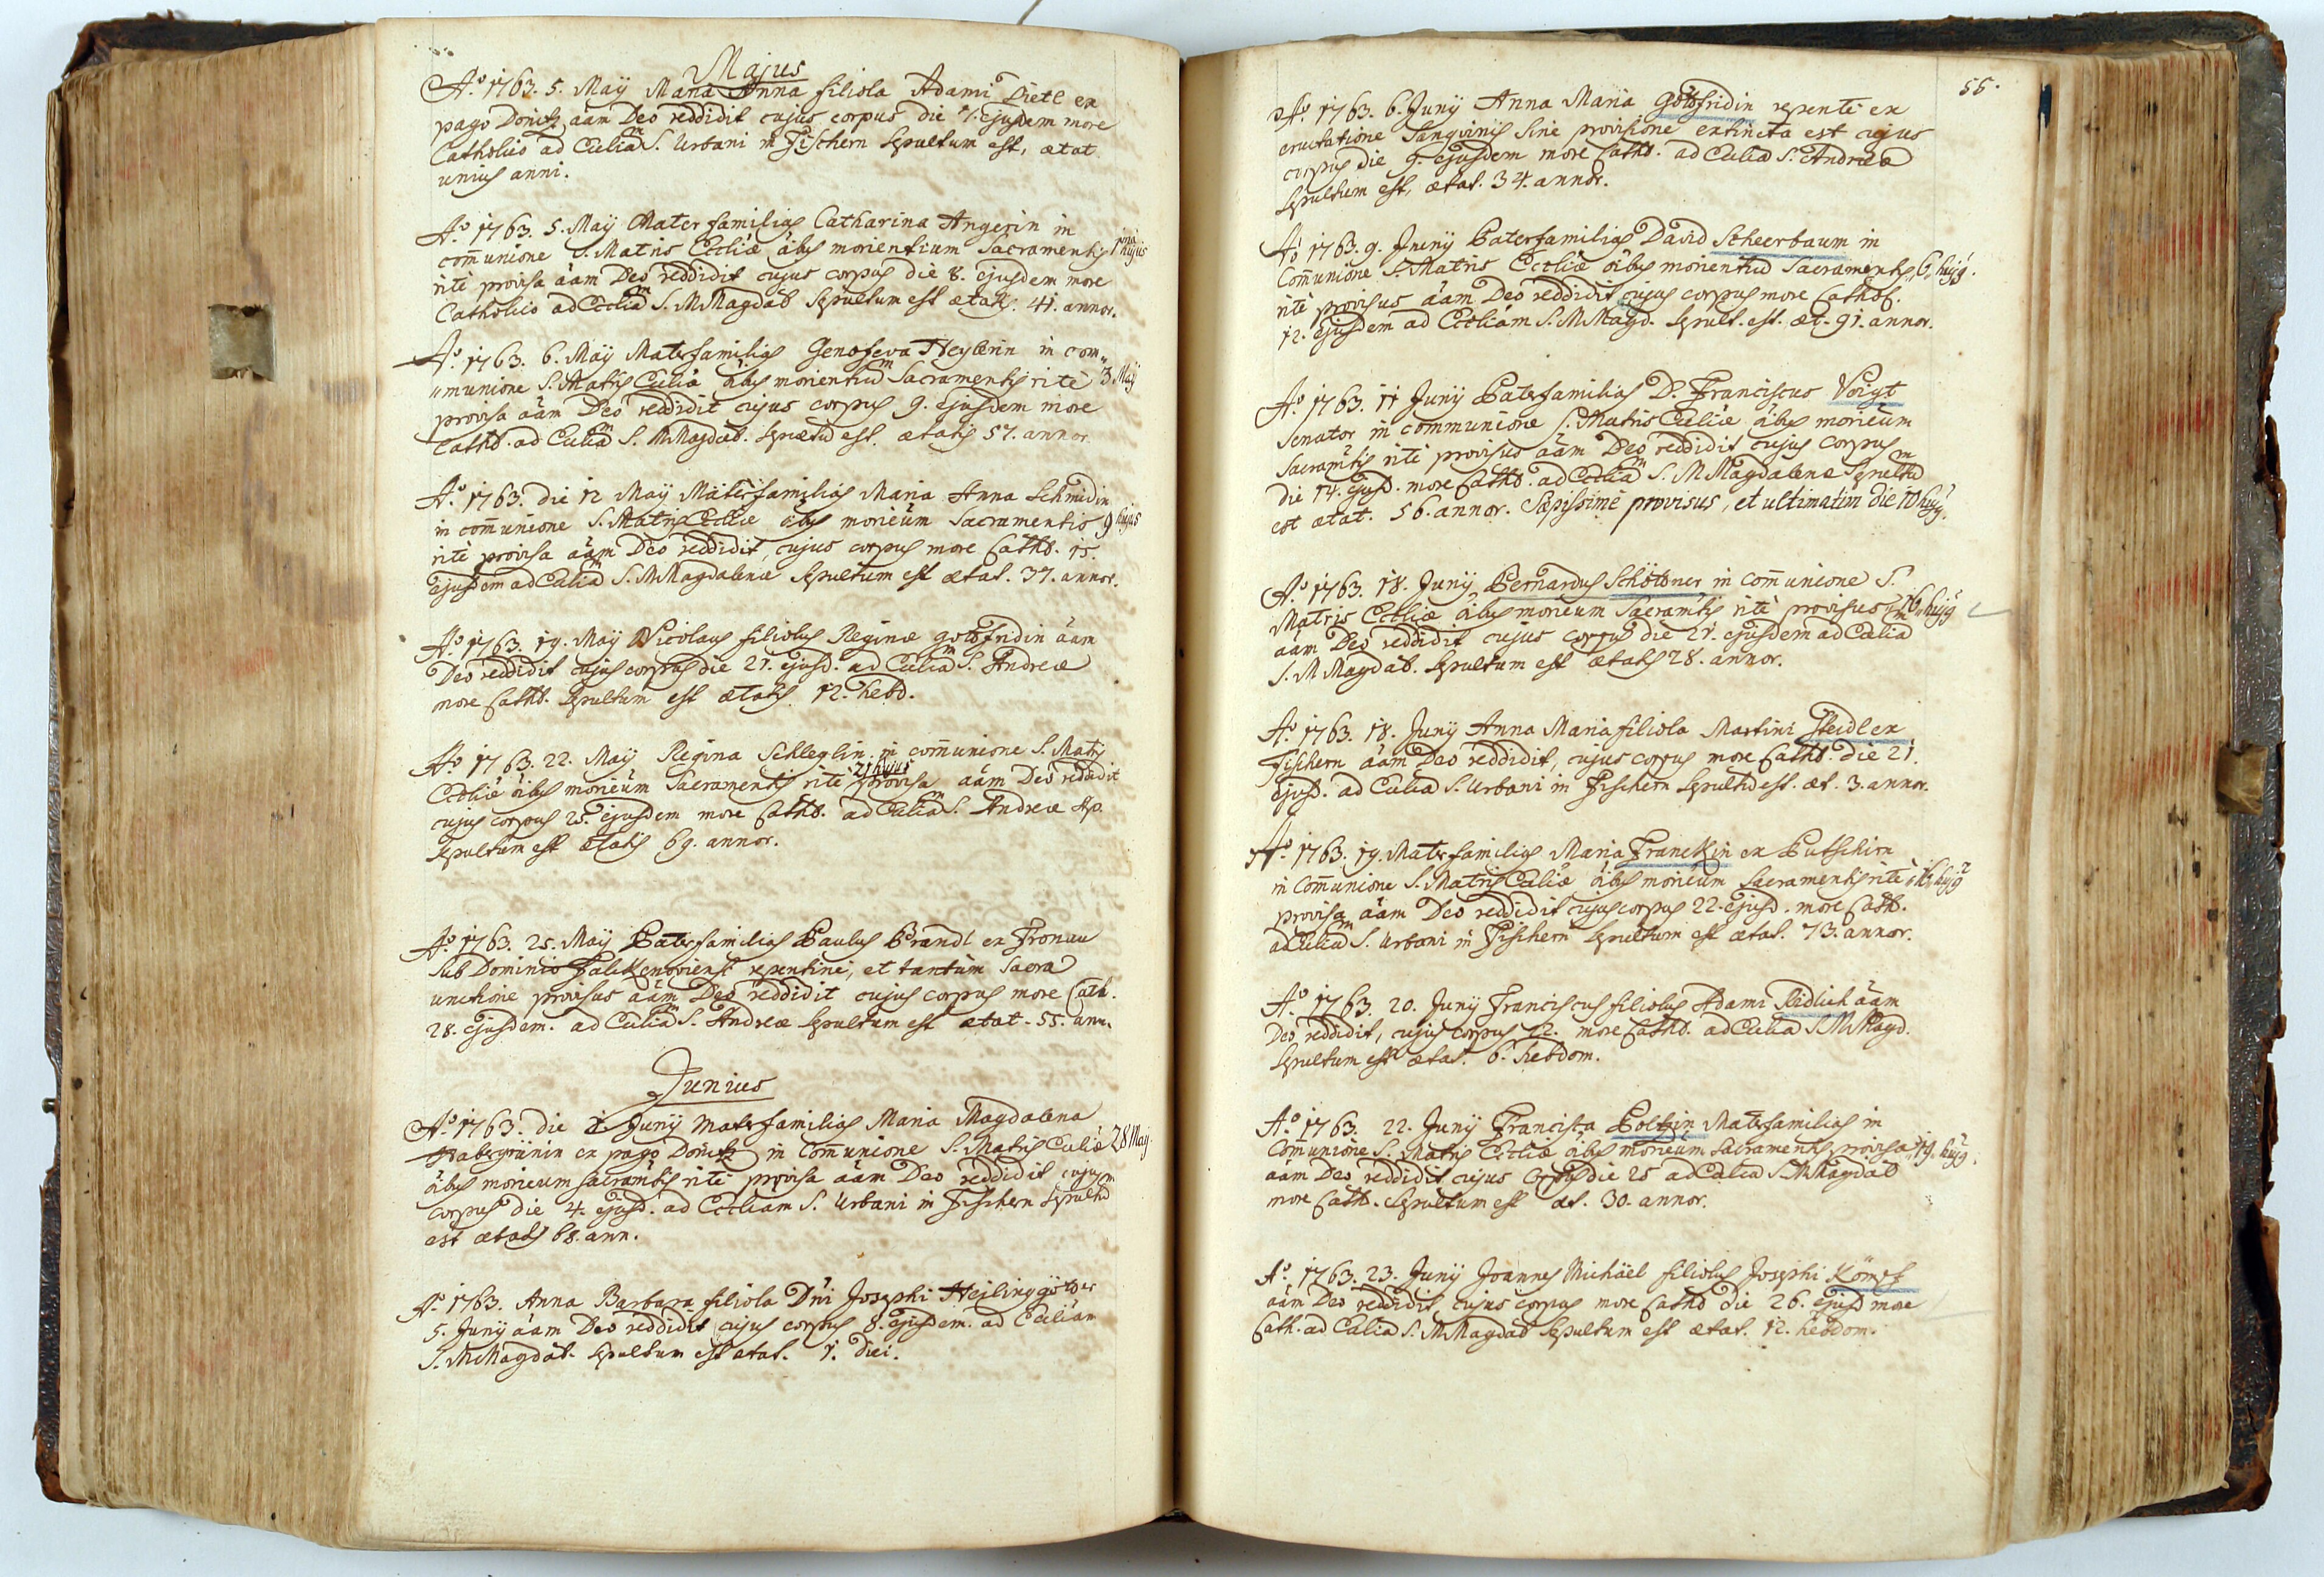 Majus
Aõ 1763. 5. Maÿ Maria Anna filiola Adami Dietl ex
pago Donitz äam Deo reddidit cujus corpus die 7. ejusdem more
Catholico ad Eccliam S. Urbani in Fischern sepultum est, ætat
unius anni.
Aõ 1763. 5. Maÿ Mater familias Catharina Angerin in
com̄unione S. Matris Eccliæ äibus morientium Sacramentis 1ma hujus
ritè provisa äam Deo reddidit cujus corpus die 8. ejusdem more
Catholico ad Eccliam S. M Magdäl sepultum est ætatis. 41. annor.
Aõ 1763. 6. Maÿ Materfamilias Genofeva Heylerin in com„
„munione S. Matris Eccliæ äibus morientium Sacramentis ritè 3 Maÿ
provisa äam Deo reddidit cujus corpus 9. ejusdem more
Cathol. ad Eccliam S. M Magdal. est. ætatis 57. annor.
Aõ 1763. die 12 Maÿ Materfamilias Maria Anna Schmidin
in com̄unione S. Matris Eccliæ äibus morieüm Sacramentis 9 hujus
ritè provisa äam Deo reddidit, cujus corpus more Cathol. 15.
ejusdem ad Eccliam S. M Magdalenæ sepultum est ætat. 37. annor.
Aõ 1763. 19. Maÿ Nicolaus filiolus Reginæ gottfridin äam
Deo reddidit cujus corpus die 21. ejusd. ad Eccliam S. Andreæ
more Cathol. sepultum est ætatis. 12. hebd.
Aõ 1763. 22. Maÿ Regina Schleglin in com̄unione S. Matris
Eccliæ äibus morieüm Sacramentis ritè 21 hujus provisa äam Deo reddidit
cujus corpus 25. ejusdem more Cathol. ad Eccliam S. Andreæ Ap.
sepultum est ætatis 69. annor.
Aõ 1763. 25. Maÿ Paterfamilias Paulus Brandl ex Fronau
sub Dominio Falckenoviensi repentinè, et tantùm Sacra
unctione provisus äam Deo reddidit cujus corpus more Cath.
28. ejusdem. ad Eccliam S. Andreæ sepultum est ætat. 55. ann.
Junius
Aõ 1763. die 2 Junÿ Materfamilias Maria Magdalena
Habergrünin ex pago Donitz in Com̄unione S. Matris Eccliæ 28 Maÿ.
äibus morieum sacramẽtis ritè provisa äam Deo reddidit cujus
corpus die 4. ejusd. ad Eccliam S. Urbani in Fischern sepultũ
est ætatis 68. ann.
Aõ 1763. Anna Barbara filiola Dñi Josephi Heilinggötter
5. Junÿ äam Deo reddidit cujus corpus 8. ejusdem. ad Eccliam
S. M Magdal. sepultum est ætat. 1. diei.
55.
Aõ 1763. 6. Junÿ Anna Maria Gottfridin repentè ex
eructatione Sanguinis sine provisione extincta est cujus
corpus die 9. ejusdem more Cathol. ad Eccliã S. Andreæ
sepultum est, ætat. 34. annor.
Aõ 1763. 9. Junÿ Paterfamilias David Scheerbaum in
Com̄unione S. Matris Eccliæ äibus morientiũ Sacramentis 6. hujg.
ritè provisus äam Deo reddidit cujus corpus more Cathol.
12. ejusdem ad Eccliam S. M Magd. sepult. est. æt. 91. annor.
Aõ 1763. 11 Junÿ Paterfamilias D. Franciscus Voigt
Senator in communione S. Matris Eccliæ äibus morieüm
Sacramẽtis ritè provisus äam Deo reddidit cujus corpus
die 14. ejusd. more Cathol. ad Eccliam S. M Magdalenæ sepultũ
est ætat. 56. annor. Sæpissimè provisus, et ultimatim die 10 hujg.
Aõ 1763. 18. Junÿ Bernardus Schöttner in com̄unione S.
Matris Eccliæ äibus morieum Sacramẽtis ritè provisus 16. hujg
äam Deo reddidit cujus corpus die 21. ejusdem ad Eccliam
S. M Magdäl. sepultum est ætatis 28. annor.
Aõ 1763. 18. Junÿ Anna Maria filiola Martini Steidl ex
Fischern äam Deo reddidit, cujus corpus more Cathol. die 21.
ejusd. ad Eccliã S. Urbani in Fischern sepultũ est. æt. 3. annor.
Aõ 1763. 19. Materfamilias Maria Franckin ex Putschirn
in Com̄unione S. Matris Eccliæ äibus morieüm Sacramentis ritè hujg
provisa äam Deo reddidit cujus corpus 22. ejusd. more Cath.
ad Eccliam S. Urbani in Fischern sepultum est ætat. 73. annor.
Aõ 1763. 20. Junÿ Franciscus filiolus Adami Ridlich äam
Deo reddidit, cujus corpus 22. more Cathol. ad Eccliã S. M Magd.
sepultum est ætat. 6. hebdom.
Aõ 1763. 22. Junÿ Francisca Poltzin Materfamilias in
Com̄unione S. Matris Eccliæ äibus morieüm Sacramentis provisa 19. hujg.
äam Deo reddidit cujus corpus die 25 ad Eccliã S. M Magdäl
more Cathol. sepultum est æt. 30. annor.
Aõ 1763. 23. Junÿ Joannes Michäel filiolus Josephi Kömpf
äam Deo reddidit, cujus corpus more Cathol die 26. ejusd more
Cath. ad Eccliã S. M Magdäl sepultum est ætat. 12. hebdom.